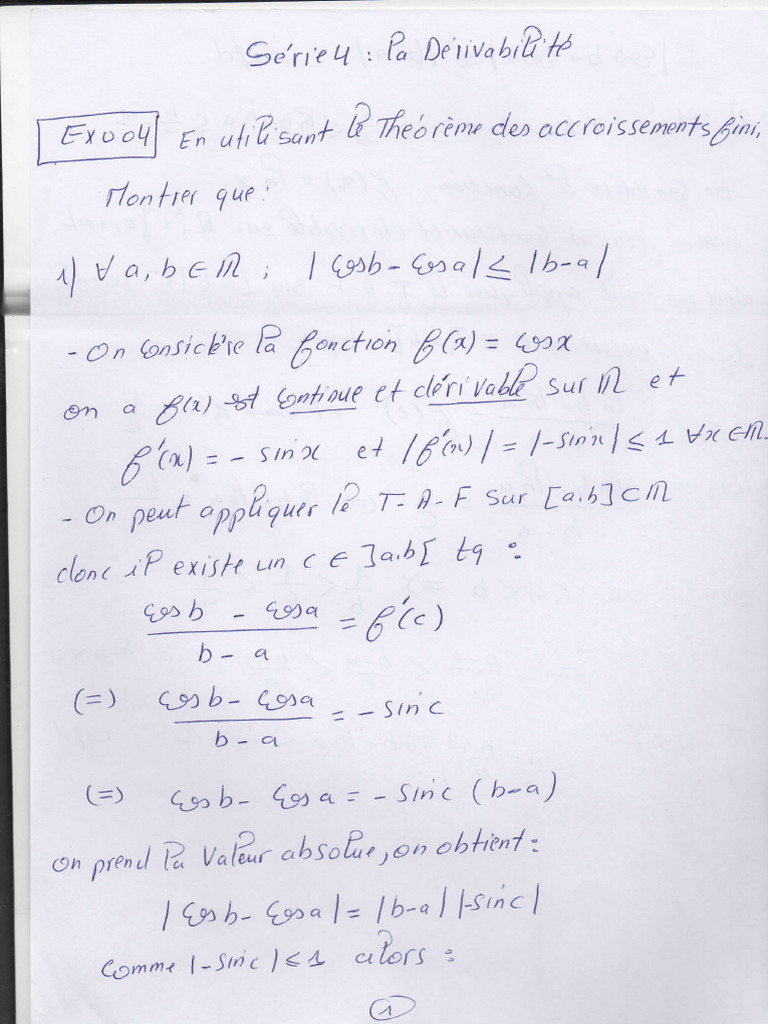 Série 4 : la Dérivabilité
Exo 04 En utilisant le Théorème des accroissements fini,
Montrer que :
1) ∀ a, b ∈ ℝ ; |cosb - cosa| ≤ |b-a|
- On considère la fonction f(x) = cosx
on a f(x) est continue et dérivable sur ℝ et
f'(x) = - sinx et |f'(x)| = |-sinx| ≤ 1 ∀x ∈ ℝ.
- On peut appliquer le T-A-F sur [a.b] ⊂ ℝ
donc il existe un c ∈ ]a.b[ tq :
(cosb - cosa)/(b - a) = f'(c)
(=) (cosb - cosa)/(b - a) = - sinc
(=) cosb - cosa = - sinc (b-a)
on prend la valeur absolue, on obtient :
|cosb - cosa| = |b-a| |-sinc|
comme |-sinc| ≤ 1 alors :
1